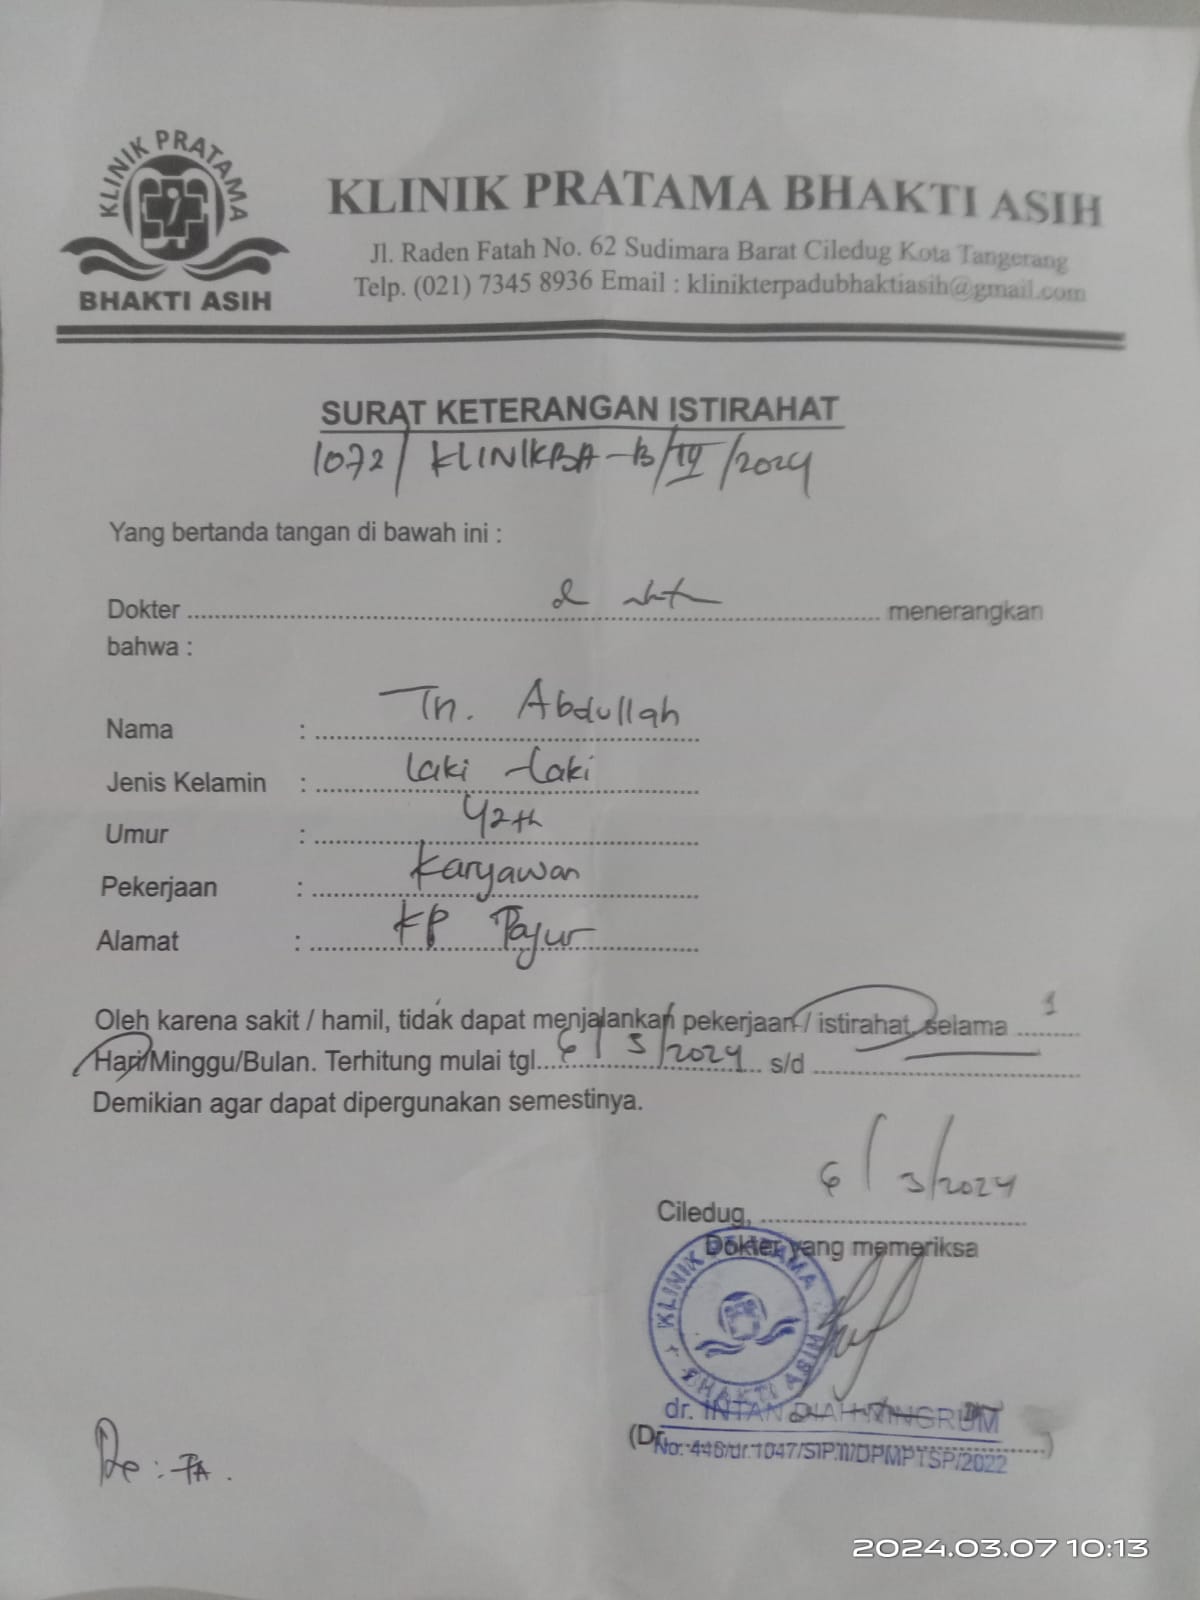 KLINIK PRATAMA
BHAKTI ASIH
KLINIK PRATAMA BHAKTI ASIH
Jl. Raden Fatah No. 62 Sudimara Barat Ciledug Kota Tangerang
Telp. (021) 7345 8936 Email : klinikterpadubhaktiasih@gmail.com
SURAT KETERANGAN ISTIRAHAT
1072/ KLINIKBA-B/IV/2024
Yang bertanda tangan di bawah ini :
Dokter menerangkan
bahwa :
Nama : Tn. Abdullah
Jenis Kelamin : laki - laki
Umur : 42th
Pekerjaan : Karyawan
Alamat : KP Payur
Oleh karena sakit / hamil, tidak dapat menjalankan pekerjaan / istirahat, selama 1
Hari/Minggu/Bulan. Terhitung mulai tgl. 6/3/2024 s/d
Demikian agar dapat dipergunakan semestinya.
Ciledug, 6/3/2024
Dokter yang memeriksa
KLINIK PRATAMA
BHAKTI ASIH
dr. INTAN DIAH NINGRUM
(Dr. )
No: 446/dr.1047/SIP.II/DPMPTSP/2022
2024.03.07 10:13